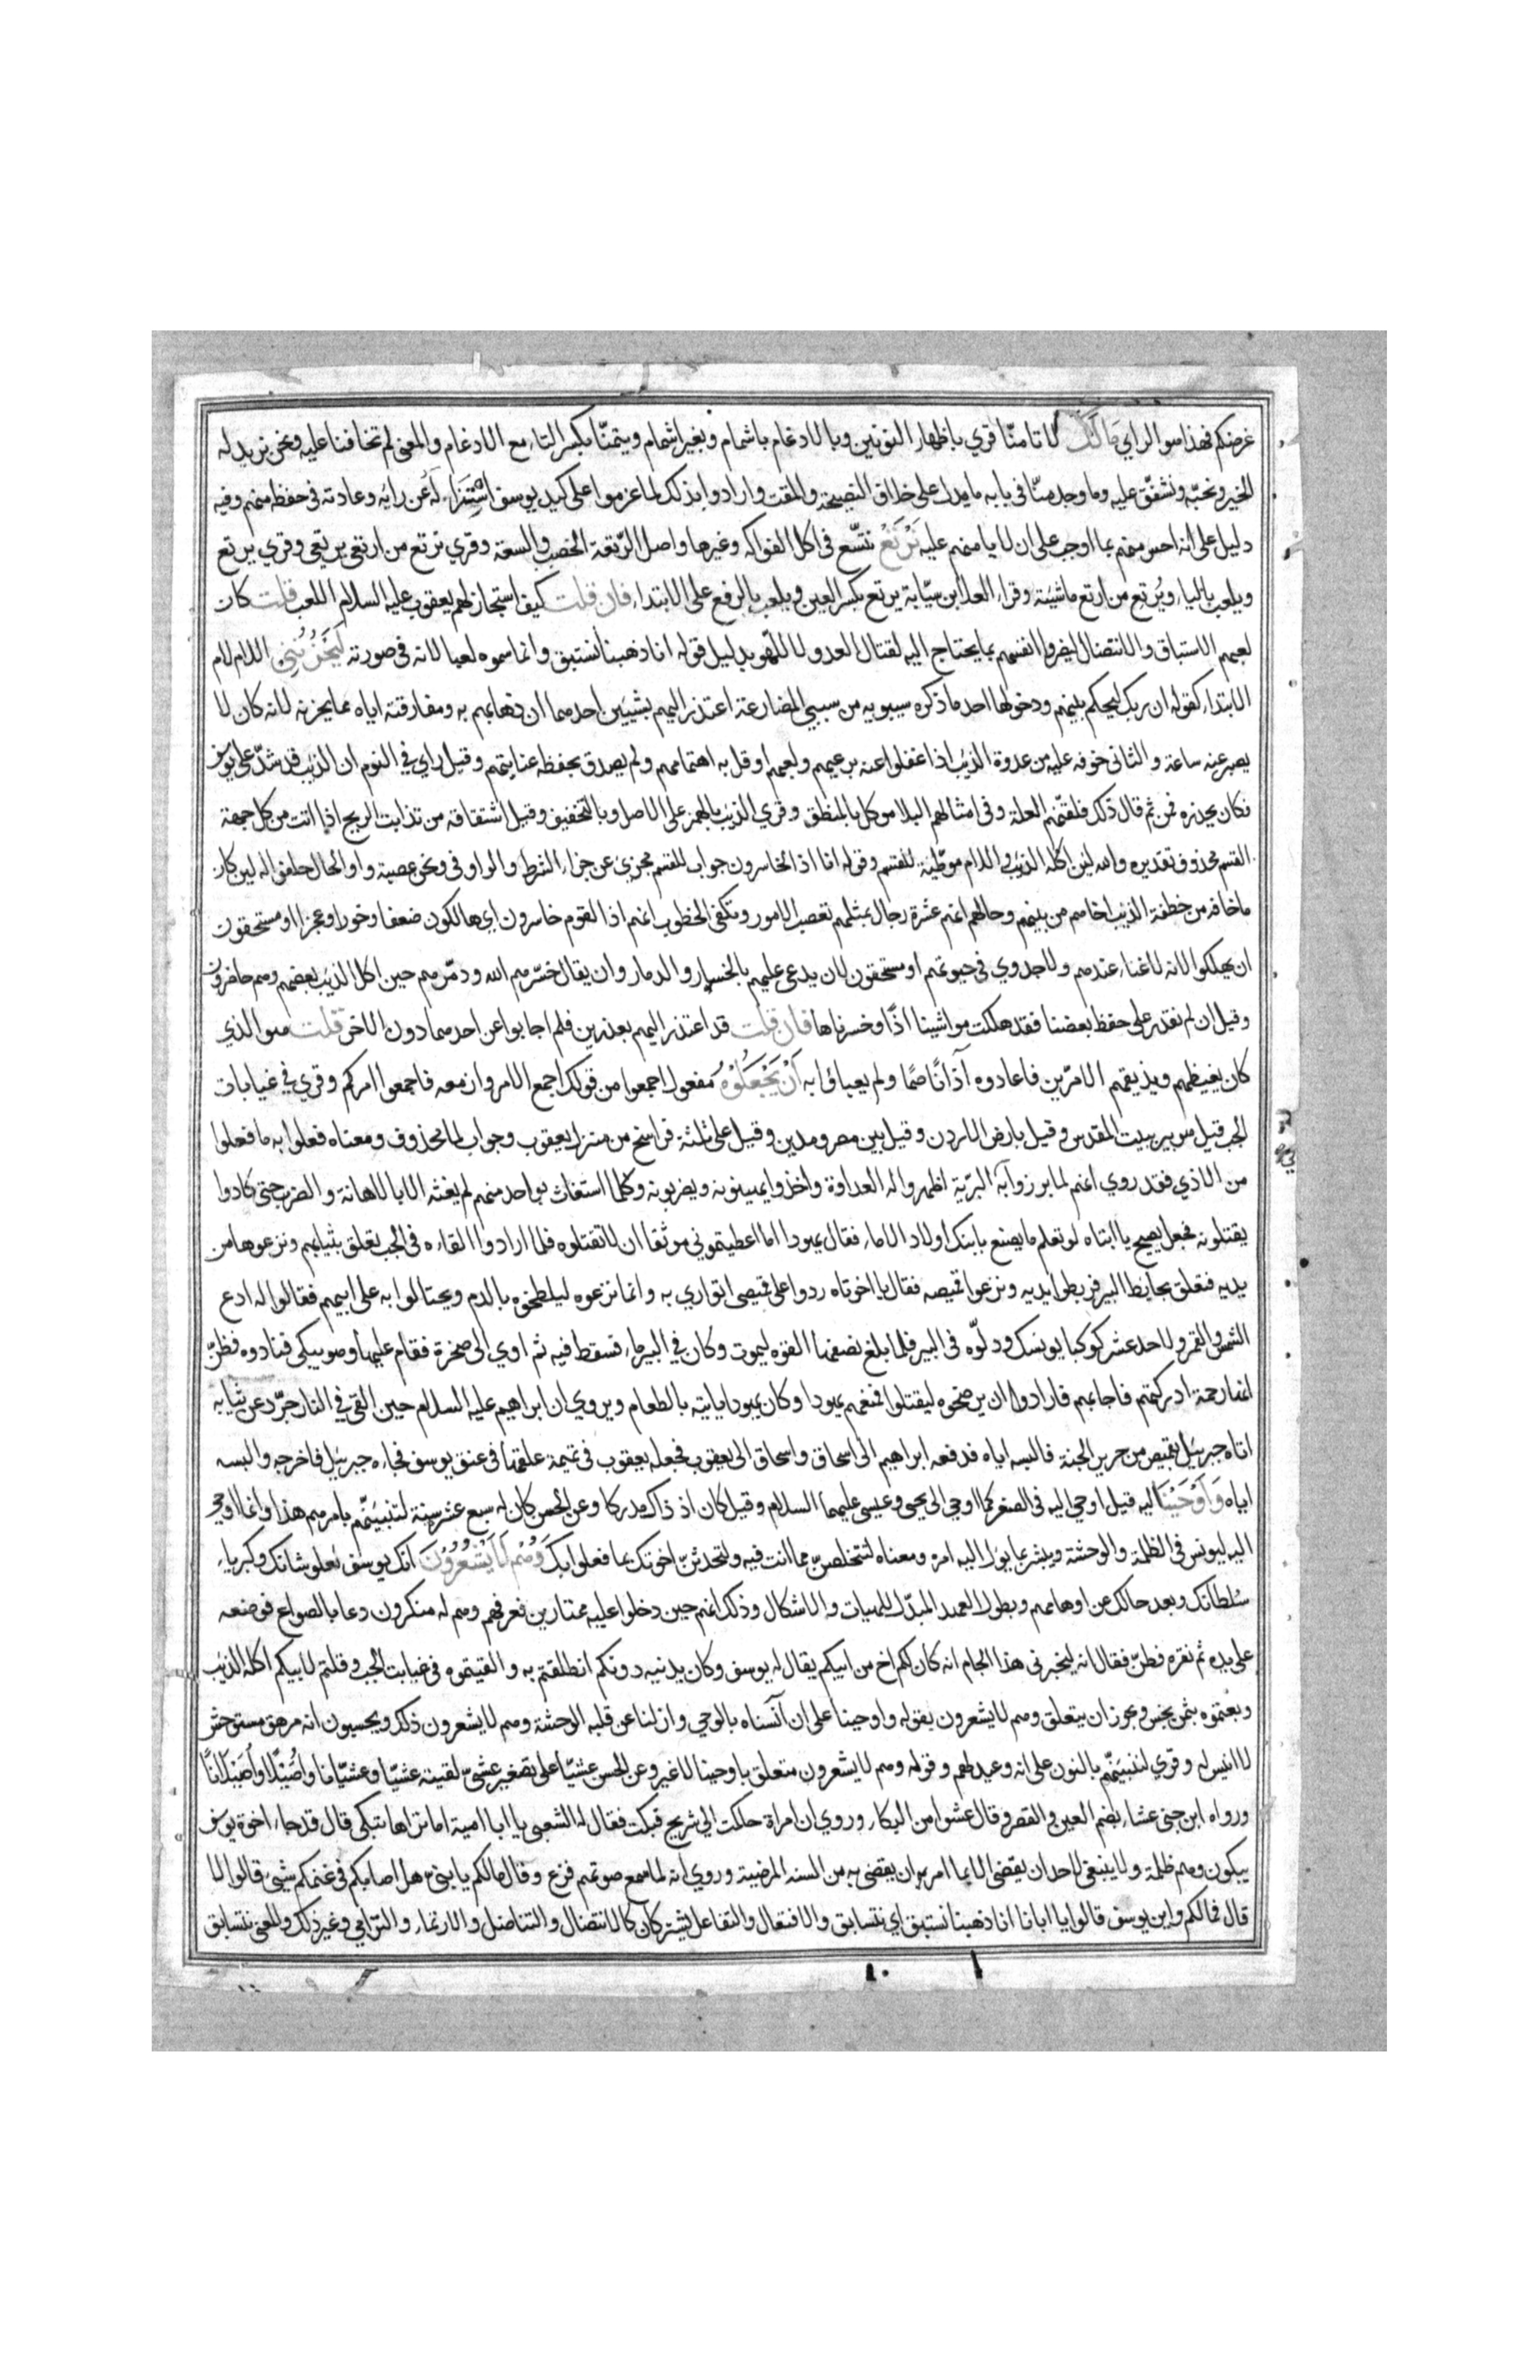 غرضكم فهذا هو الراي مَالَكَ لا تامنّا قري باظهار النونين وبالادغام باشمام وبغير اشمام وتيمنّا بكسر التاء مع الادغام والمعنى لم تخافنا عليه ونحن نريد له
الخير ونحبّه ونشفق عليه وما وجد منّا في بابه ما يدل على خلاف النصيحة والمقت وارادوا بذلك لما عزموا على كيد يوسف استنزاله عن رايه وعادته في حفظه منهم وفيه
دليل على انه احس منهم بما اوجب على ان لا يامنهم عليه نَرْتَعْ نتّسع في اكل الفواكه وغيرها واصل الرتعة الخصب والسعة وقري نرتع من ارتعى يرتعي وقري يرتع
ويلعب بالياء ويُرتع من ارتع ماشيته وقراء العلا ابن سيّابة يرتع بكسر العين ويلعب بالرفع على الابتداء فان قلت كيف استجاز لهم يعقوب عليه السلام اللعب قلت كان
لعبهم الاستباق والانتضال ليضروا انفسهم بما يحتاج اليه لقتال العدو لا للهو بدليل قوله انا ذهبنا نستبق وانما سموه لعبا لانه في صورته لَيَحْزُنُنِي اللام لام
الابتداء كقوله ان ربك ليحكم بينهم ودخولها احد ما ذكره سيبويه من سببي المضارعة اعتذر اليهم بشيئين احدهما ان ذهابهم به ومفارقته اياه مما يحزنه لانه كان لا
يصبر عنه ساعة والثاني خوفه عليه من عدوة الذيب اذا غفلوا عنه برعيهم ولعبهم او قل به اهتمامهم ولم يصدق بحفظه عنايتهم وقيل راي في النوم ان الذيب قد شدّ على يوسف
فكان يحذره فمن ثم قال ذلك فلقنهم العلة وفي امثالهم البلاء موكل بالمنطق وقري الذيب بالهمز على الاصل وبالتخفيف وقيل اشتقاقه من تذابت الريح اذا اتت من كل جهة
القسم محذوف تقديره والله لئن اكله الذيب واللام موطّية للقسم وقوله انا اذا لخاسرون جواب للقسم مجزئ عن جزاء الشرط والواو في ونحن عصبة واو الحال حلفوا له لين كان
ما خافه من خطفة الذيب اخاهم من بينهم وحالهم انهم عشرة رجال بمثلهم تعصب الامور وتكفى الخطوب انهم اذا القوم خاسرون اي هالكون ضعفا وخورا وعجزا او مستحقون
ان يهلكوا لانه لا غناء عندهم ولا جدوي في حيوتهم او مستحقون لان يدعى عليهم بالخسار والدمار وان يقال خسّرهم الله ودمّرهم حين اكل الذيب بعضهم وهم حاضرون
وقيل ان لم نقدر على حفظ بعضنا فقد هلكت مواشينا اذًا وخسرناها فان قلت قد اعتذر اليهم بعذرين فلم اجابوا عن احدهما دون الاخر قلت هو الذي
كان يغيظهم ويذيقهم الامرّين فاعادوه آذانًا صمّا ولم يعباؤا به اَنْ يَجْعَلُوْهُ مفعول اجمعوا من قولك اجمع الامر وازمعه فاجمعوا امركم وقري في غيابات
الجب قيل هو بير بيت المقدس وقيل بارض الاردن وقيل بين مصر ومدين وقيل على ثلثة فراسخ من منزل يعقوب وجواب لما محذوف ومعناه فعلوا به ما فعلوا
من الاذي فقد روي انهم لما برزوا به البرّية اظهروا له العداوة واخذوا يهينونه ويضربونه وكلما استغاث بواحد منهم لم يغثه الا بالاهانة والضرب حتى كادوا
يقتلونه فجعل يصيح يا ابتاه لو تعلم ما يصنع بابنك اولاد الاماء فقال يهودا اما اعطيتموني موثقا ان لا تقتلوه فلما ارادوا القاءه في الجب تعلق بثيابهم ونزعوها من
يديه فتعلق بحايط البير فربطوا يديه ونزعوا قميصه فقال يا اخوتاه ردوا على قميصي اتواري به وانما نزعوه ليلطخوه بالدم ويحتالوا به على ابيهم فقالوا له ادع
الشمس والقمر والاحد عشر كوكبا يونسك ودلّوه في البير فلما بلغ نصفها القوه ليموت وكان في البير ماء فسقط فيه ثم اوي الى صخرة فقام عليها وهو يبكى فنادوه فظنّ
انها رحمة ادركتهم فاجابهم فارادوا ان يرضخوه ليقتلوا فمنعهم يهودا وكان يهودا ياتيه بالطعام ويروي ان ابراهيم عليه السلام حين القى في النار جرّد عن ثيابه
اتاه جبريل بقميص من حرير الجنة فالبسه اياه فدفعه ابراهيم الى اسحاق واسحاق الى يعقوب فجعله يعقوب في تميمة علقها في عنق يوسف فجاءه جبريل فاخرجه والبسه
اياه وَاَوْحَيْنَا اليه قيل اوحي اليه في الصغر كما اوحي الى يحيى وعيسى عليهما السلام وقيل كان اذ ذاك مدركا وعن الحسن كان له سبع عشر سنة لتنبئنّهم بامرهم هذا وانما اوحي
اليه ليونس في الظلمة والوحشة ويبشر بما يوول اليه امره ومعناه لتتخلصنّ مما انت فيه ولتحدثنّ اخوتك بما فعلوا بك وَهُمْ لَا يَشْعُرُوْنَ انك يوسف لعلو شانك وكبرياء
سُلطانك وبعد حالك عن اوهامهم ولطول العهد المبدّل للهيات والاشكال وذلك انهم حين دخلوا عليه ممتارين فعرفهم وهم له منكرون دعا بالصواع فوضعه
على يده ثم نقره فطنّ فقال انه ليخبرني هذا الجام انه كان لكم اخ من ابيكم يقال له يوسف وكان يدنيه دونكم انطلقتم به والقيتموه في غيابت الجب وقلتم لابيكم اكله الذيب
وبعتموه بثمن بخس ويجوز ان يتعلق وهم لا يشعرون بقوله واوحينا على ان آنسناه بالوحي وازلنا عن قلبه الوحشة وهم لا يشعرون ذلك ويحسبون انه مرهق مستوحش
لا انيس له وقري لننبئنّهم بالنون على انه وعيد لهم وقوله وهم لا يشعرون متعلق باوحينا لا غير وعن الحسن عشيّا على تصغير عشيّ لقيته عشيّا وعشيّانا واُصَيْلًا واُصَيْلانًا
ورواه ابن جنى عشاء بضم العين والقصر وقال عشوا من البكاء وروي ان امراة حاكمت الي شريح فبكت فقال له الشعبى يا ابا امية اما تراها تبكى قال قد جاء اخوة يوسف
يبكون وهم ظلمة ولا ينبغي لاحد ان يقضى الا بما امر ان يقضى به من السنه المرضية وروي انه لما سمع صوتهم فزع وقال ما لكم يا بنيّ هل اصابكم في غنمكم شيئ قالوا لا
قال فما لكم واين يوسف قالوا يا ابانا انا ذهبنا نستبق اي نتسابق والافتعال والتفاعل يشتركان كالانتضال والتناضل والارتماء والترامي وغير ذلك والمعنى نتسابق